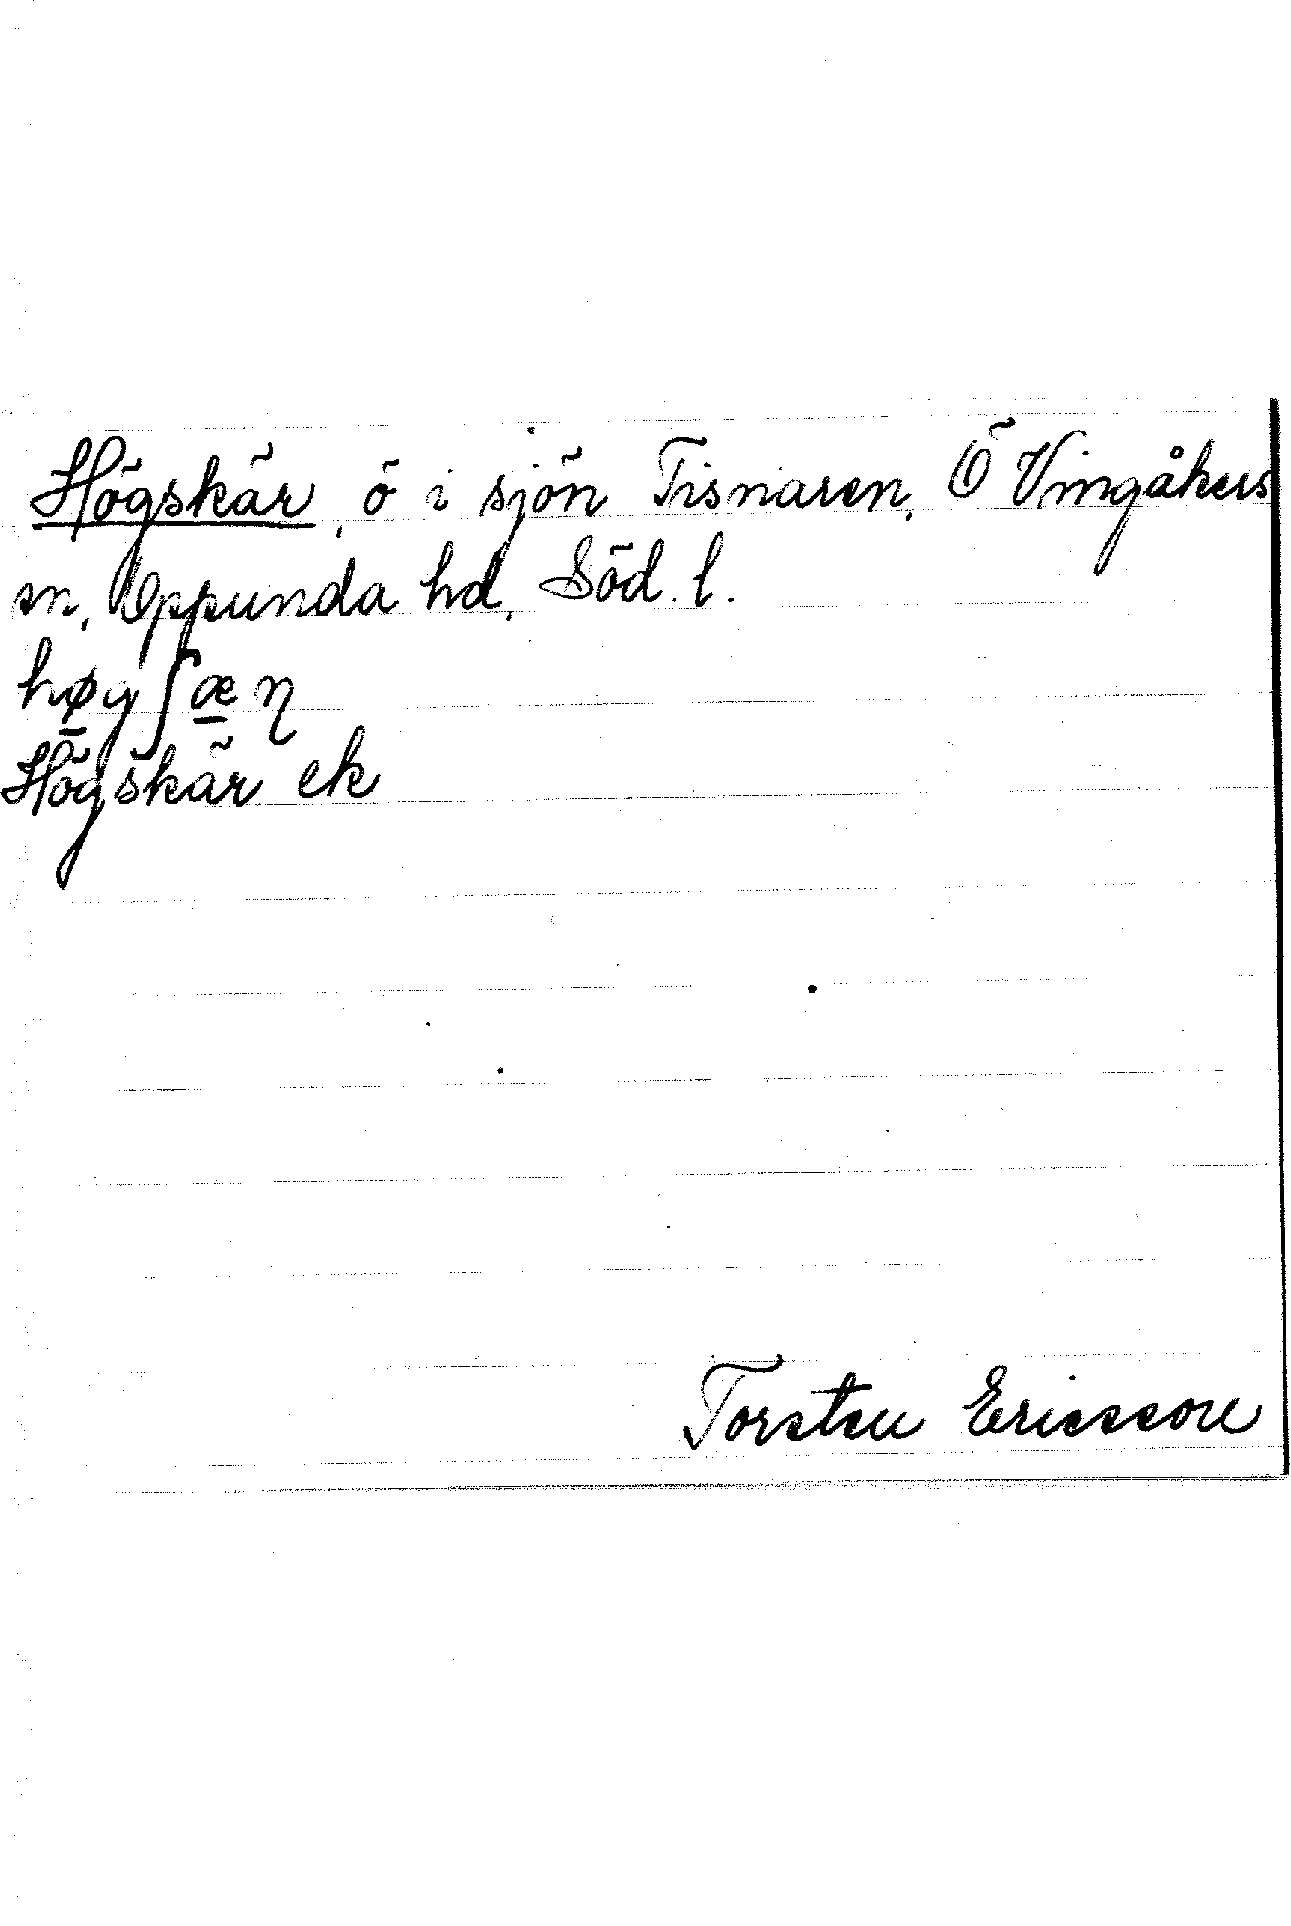 Högskär, ö i sjön Tisnaren, Ö Vingåkers
sn, Oppunda hd, Söd. l.
høgʃæη
Högskär ek
Torsten Ericsson